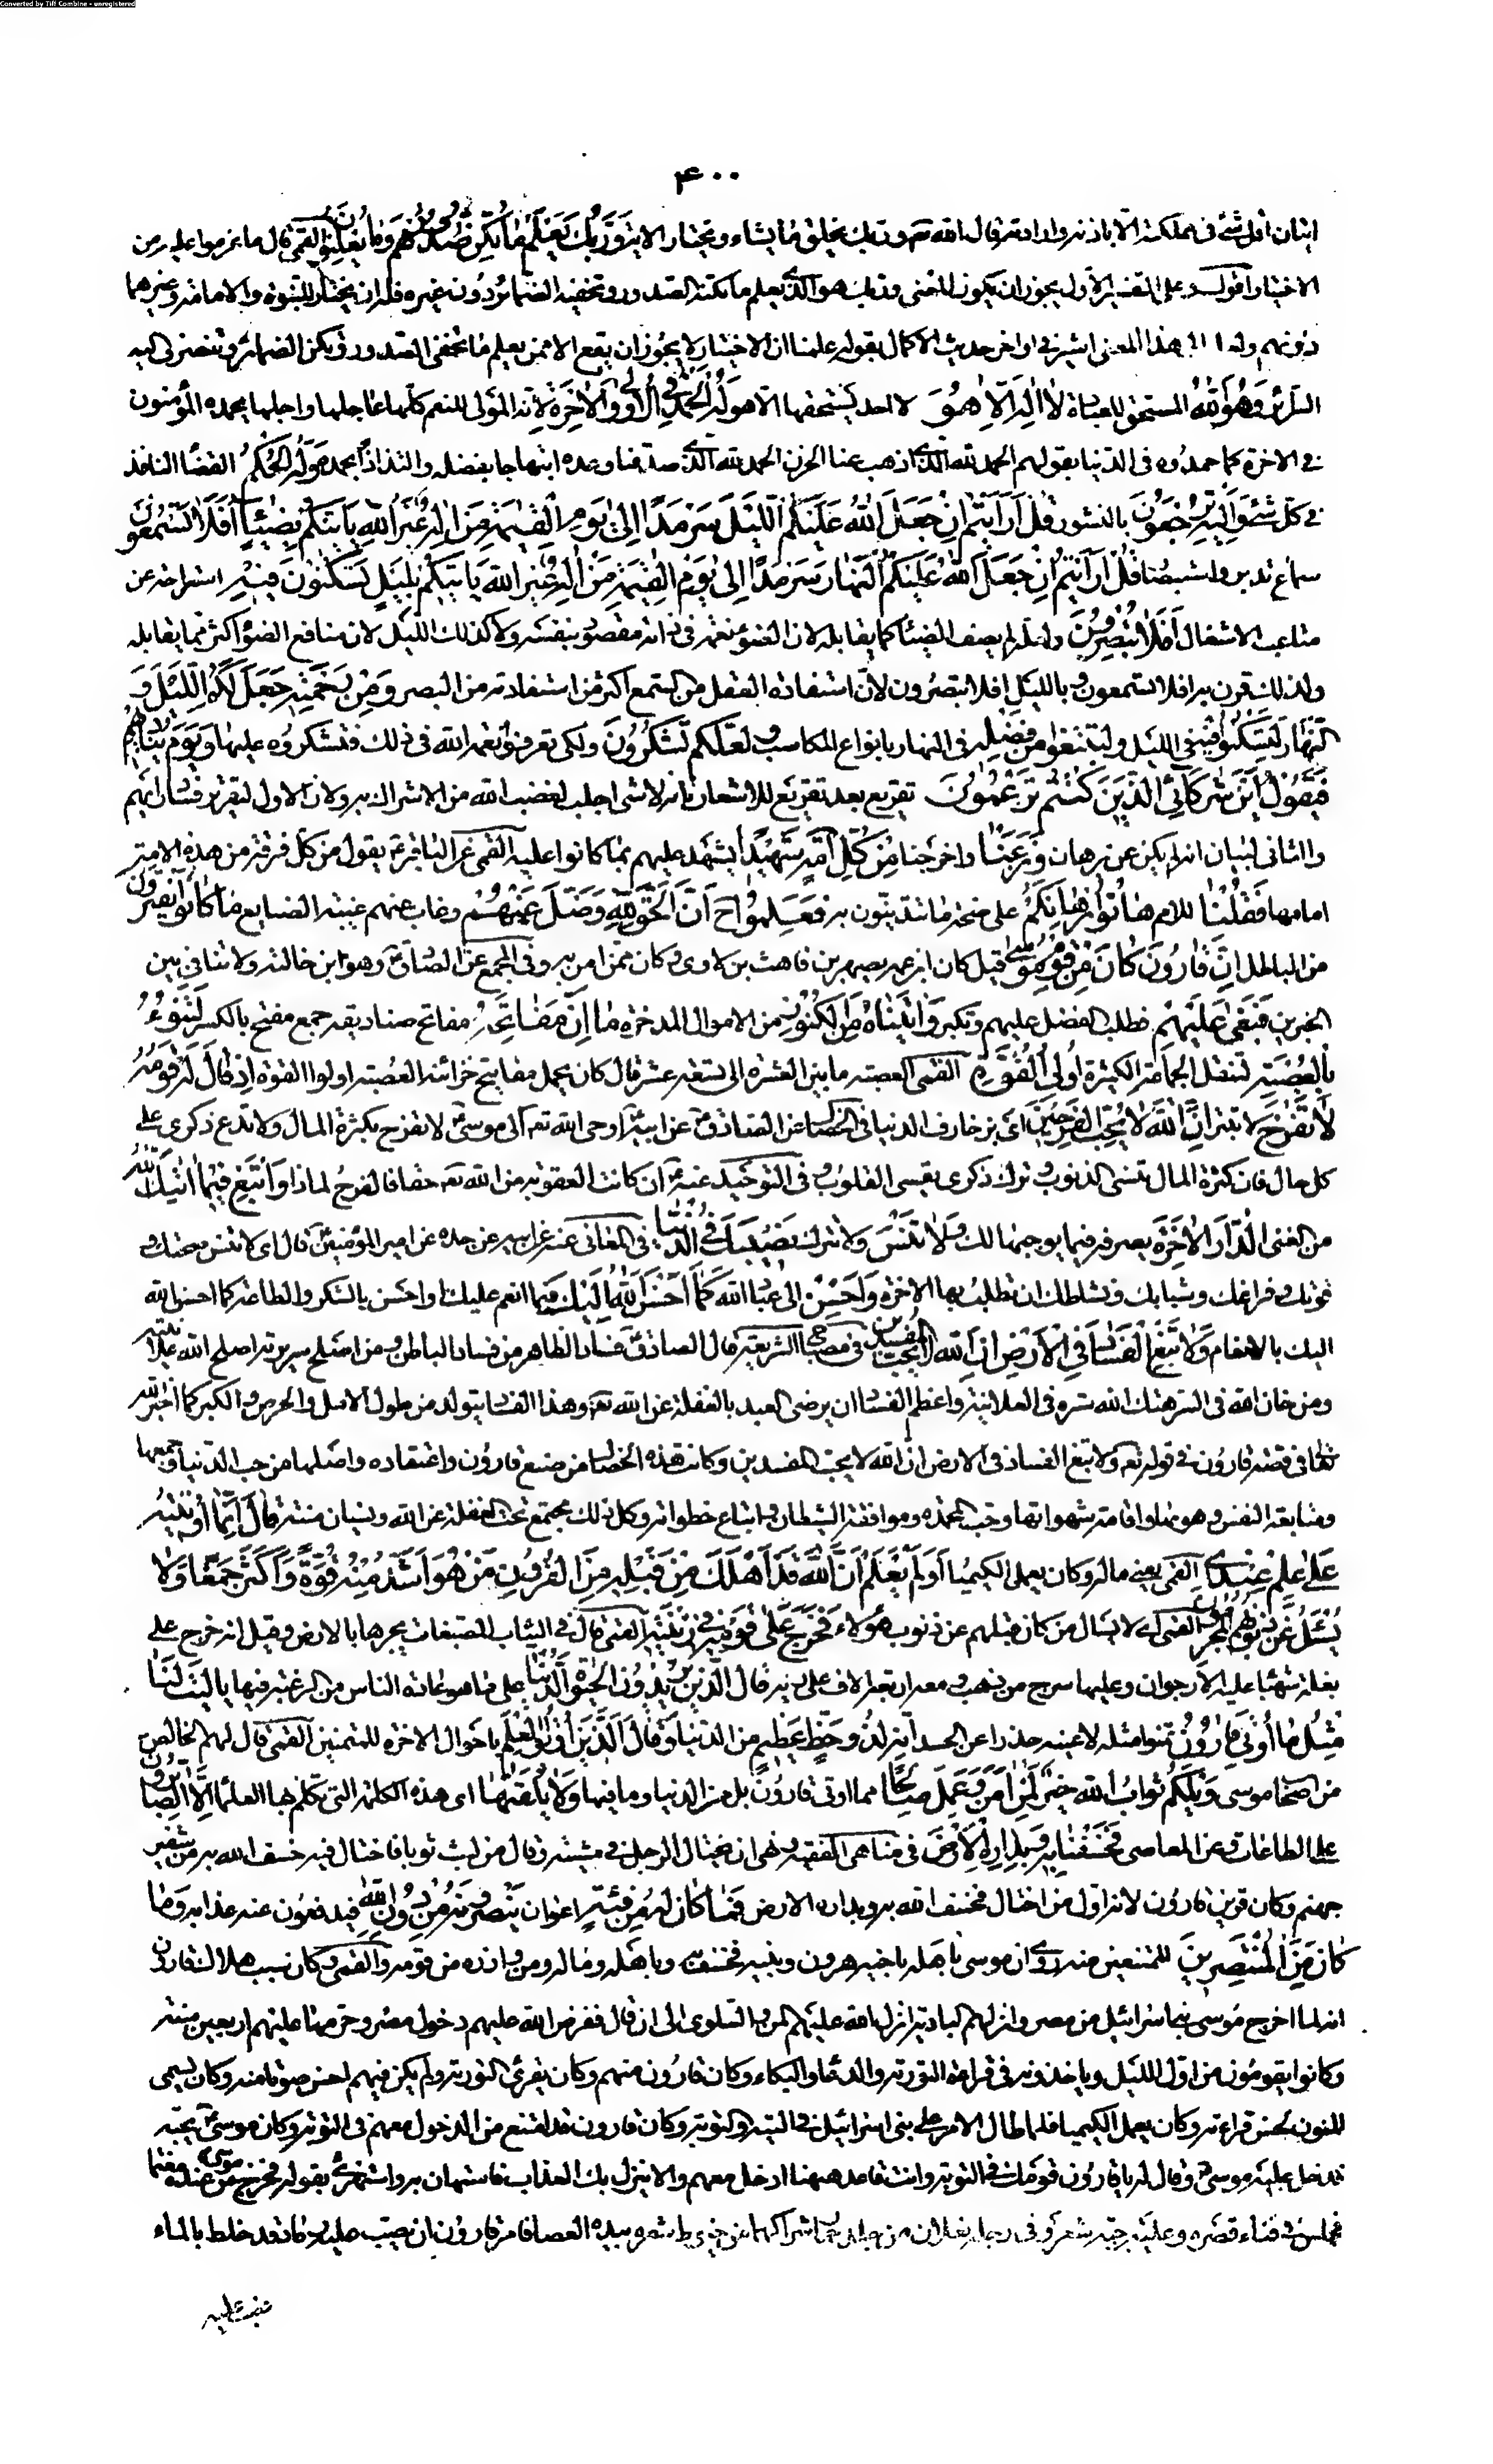 Converted by Tiff Combine - unregistered
۴۰۰
اتيان اقل شئ فى مملكته الا باذنه وارادته قال الله تعم وربك يخلق ما يشاء ويختار الاية وَرَبُّكَ يَعْلَمُ مٰا تُكِنُّ صُدُورُهُمْ وَمٰا يُعْلِنُونَ القمى قال ما عزموا عليه من
الاختيار اقول وعلى التفسير الاول يجوز ان يكون المعنى وربك هو الذى يعلم ما تكنه الصدور وتخفيه الضمائر دون غيره فله ان يختار للنبوة والامامة وغيرهما
دونهم هذا المعنى اشير فى اواخر حديث الاكمال بقوله علمنا ان الاختيار لا يجوز ان يقع الا ممن يعلم ما تخفى الصدور وتكن الضمائر وتنصرف اليه
السرائر وَهُوَ اللّٰهُ المستحق للعبادة لٰا اِلٰهَ اِلّٰا هُوَ لا احد يستحقها الا هو لَهُ الْحَمْدُ فِى الْاُولٰى وَالْاٰخِرَةِ لانه المولى للنعم كلها عاجلها واجلها يحمده المؤمنون
فى الاخرة كما حمدوه فى الدنيا بقولهم الحمد لله الذى اذهب عنا الحزن الحمد لله الذى صدقنا وعده ابتهاجا بفضله والتذاذا بحمده وَلَهُ الْحُكْمُ القضاء النافذ
فى كل شئ وَاِلَيْهِ تُرْجَعُونَ بالنشور قُلْ اَرَاَيْتُمْ اِنْ جَعَلَ اللّٰهُ عَلَيْكُمُ اللَّيْلَ سَرْمَدًا اِلٰى يَوْمِ الْقِيٰمَةِ مَنْ اِلٰهٌ غَيْرُ اللّٰهِ يَأْتِيكُمْ بِضِيٰاءٍ اَفَلٰا تَسْمَعُونَ
سماع تدبر واستبصار قُلْ اَرَاَيْتُمْ اِنْ جَعَلَ اللّٰهُ عَلَيْكُمُ النَّهٰارَ سَرْمَدًا اِلٰى يَوْمِ الْقِيٰمَةِ مَنْ اِلٰهٌ غَيْرُ اللّٰهِ يَأْتِيكُمْ بِلَيْلٍ تَسْكُنُونَ فِيهِ استراحة عن
متاعب الاشغال اَفَلٰا تُبْصِرُونَ ولعله لم يصف الضياء بما يقابله لان الضوء نعمة فى ذاته مقصود بنفسه ولا كذلك الليل لان منافع الضوء اكثر مما يقابله
ولذلك قرن به افلا تسمعون وبالليل افلا تبصرون لان استفادة العقل من السمع اكثر من استفادته من البصر وَمِنْ رَحْمَتِهِ جَعَلَ لَكُمُ اللَّيْلَ وَ
النَّهٰارَ لِتَسْكُنُوا فِيهِ فى الليل وَلِتَبْتَغُوا مِنْ فَضْلِهِ فى النهار بانواع المكاسب وَلَعَلَّكُمْ تَشْكُرُونَ ولكى تعرفوا نعمة الله فى ذلك فتشكروه عليها وَيَوْمَ يُنٰادِيهِمْ
فَيَقُولُ اَيْنَ شُرَكٰائِىَ الَّذِينَ كُنْتُمْ تَزْعُمُونَ تقريع بعد تقريع للاشعار بانه لا شئ اجلب لغضب الله من الاشراك به ولان الاول لتقرير فساد رأيهم
والثانى لبيان انه لم يكن عن برهان وَنَزَعْنٰا واخرجنا مِنْ كُلِّ اُمَّةٍ شَهِيدًا يشهد عليهم بما كانوا عليه القمى عن الباقر ع يقول من كل فرقة من هذه الامة
امامها فَقُلْنٰا للامم هٰاتُوا بُرْهٰانَكُمْ على صحة ما تتدينون به فَعَلِمُوا ح اَنَّ الْحَقَّ لِلّٰهِ وَضَلَّ عَنْهُمْ وغاب عنهم غيبة الضايع مٰا كٰانُوا يَفْتَرُونَ
من الباطل اِنَّ قٰارُونَ كٰانَ مِنْ قَوْمِ مُوسٰى قيل كان ابن عمه يصهر بن قاهث بن لاوى وكان ممن امن به وفى المجمع عن الصادق ع وهو ابن خالته ولا تنافى بين
الخبرين فَبَغٰى عَلَيْهِمْ فطلب الفضل عليهم وتكبر وَاٰتَيْنٰاهُ مِنَ الْكُنُوزِ من الاموال المدخرة مٰا اِنَّ مَفٰاتِحَهُ مفاتح صناديقه جمع مفتح بالكسر لَتَنُوءُ
بِالْعُصْبَةِ لتثقل الجماعة الكثيرة اُولِى الْقُوَّةِ القمى العصبة ما بين العشرة الى تسعة عشر قال كان يحمل مفاتيح خزائنه العصبة اولوا القوة اِذْ قٰالَ لَهُ قَوْمُهُ
لٰا تَفْرَحْ لا تبطر اِنَّ اللّٰهَ لٰا يُحِبُّ الْفَرِحِينَ اى بزخارف الدنيا فى الخصال عن الصادق ع عن ابيه ع اوحى الله تعم الى موسى ع لا تفرح بكثرة المال ولا تدع ذكرى على
كل حال فان كثرة المال تنسى الذنوب وترك ذكرى يقسى القلوب وفى التوحيد عنه ع ان كانت العقوبة من الله تعم حقا فالفرح لماذا وَابْتَغِ فِيمٰا اٰتٰيكَ اللّٰهُ
من الغنى الدّٰارَ الْاٰخِرَةَ بصرفه فيما يوجبها لك وَلٰا تَنْسَ ولا تترك نَصِيبَكَ مِنَ الدُّنْيٰا فى المعانى عنه عن ابيه عن جده عن امير المؤمنين ع قال اى لا تنس صحتك و
قوتك وفراغك وشبابك ونشاطك ان تطلب بها الاخرة وَاَحْسِنْ الى عباد الله كَمٰا اَحْسَنَ اللّٰهُ اِلَيْكَ فيما انعم عليك واحسن بالشكر والطاعة كما احسن الله
اليك بالانعام وَلٰا تَبْغِ الْفَسٰادَ فِى الْاَرْضِ اِنَّ اللّٰهَ لٰا يُحِبُّ الْمُفْسِدِينَ فى مصباح الشريعة قال الصادق ع فساد الظاهر من فساد الباطن ومن اصلح سريرته اصلح الله علانيته
ومن خان الله فى السر هتك الله سره فى العلانية واعظم الفساد ان يرضى العبد بالغفلة عن الله تعم وهذا الفساد يتولد من طول الامل والحرص والكبر كما اخبر الله
تعالى فى قصة قارون فى قوله تعم ولا تبغ الفساد فى الارض ان الله لا يحب المفسدين وكانت هذه الخصال من صنع قارون واعتقاده واصلها من حب الدنيا وجمعها
ومتابعة النفس وهويها واقامة شهواتها وحب المحمدة وموافقة الشيطان واتباع خطواته وكل ذلك مجتمع تحت الغفلة عن الله ونسيان مننه قٰالَ اِنَّمٰا اُوتِيتُهُ
عَلٰى عِلْمٍ عِنْدِى القمى يعنى ماله وكان يعمل الكيميا اَوَلَمْ يَعْلَمْ اَنَّ اللّٰهَ قَدْ اَهْلَكَ مِنْ قَبْلِهِ مِنَ الْقُرُونِ مَنْ هُوَ اَشَدُّ مِنْهُ قُوَّةً وَاَكْثَرُ جَمْعًا وَلٰا
يُسْئَلُ عَنْ ذُنُوبِهِمُ الْمُجْرِمُونَ القمى اى لا يسأل من كان قبلهم عن ذنوب هؤلاء فَخَرَجَ عَلٰى قَوْمِهِ فِى زِينَتِهِ القمى قال فى الثياب المصبغات يجرها بالارض وقيل انه خرج على
بغلة شهباء عليه الارجوان وعليها سرج من ذهب ومعه اربعة الاف على زيه قٰالَ الَّذِينَ يُرِيدُونَ الْحَيٰوةَ الدُّنْيٰا على ما هو عادة الناس من الرغبة فيها يٰا لَيْتَ لَنٰا
مِثْلَ مٰا اُوتِىَ قٰارُونُ تمنوا مثله لا عينه حذرا عن الحسد اِنَّهُ لَذُو حَظٍّ عَظِيمٍ من الدنيا وَقٰالَ الَّذِينَ اُوتُوا الْعِلْمَ باحوال الاخرة للمتمنين القمى قال لهم الخالص
من اصحاب موسى وَيْلَكُمْ ثَوٰابُ اللّٰهِ خَيْرٌ لِمَنْ اٰمَنَ وَعَمِلَ صٰالِحًا مما اوتى قارون بل من الدنيا وما فيها وَلٰا يُلَقّٰيهٰا اى هذه الكلمة التى تكلم بها العلماء اِلَّا الصّٰابِرُونَ
على الطاعات وعن المعاصى فَخَسَفْنٰا بِهِ وَبِدٰارِهِ الْاَرْضَ فى مناهى الفقيه ونهى ان يختال الرجل فى مشيته وقال من لبس ثوبا فاختال فيه خسف الله به من شفير
جهنم وكان قرين قارون لانه اول من اختال فخسف الله به وبداره الارض فَمٰا كٰانَ لَهُ مِنْ فِئَةٍ اعوان يَنْصُرُونَهُ مِنْ دُونِ اللّٰهِ فيدفعون عنه عذابه وَمٰا
كٰانَ مِنَ الْمُنْتَصِرِينَ الممتنعين منه روى ان موسى باهله باخيه هرون وبنيه فخسف به وباهله وماله ومن وازره من قومه والقمى وكان سبب هلاك قارون
انه لما اخرج موسى بنى اسرائيل من مصر وانزلهم البادية انزل الله عليهم المن والسلوى الى ان قال ففرض الله عليهم دخول مصر وحرمها عليهم اربعين سنة
وكانوا يقومون من اول الليل وياخذون فى قراءة التورية والدعاء والبكاء وكان قارون منهم وكان يقرئ التورية ولم يكن فيهم احسن صوتا منه وكان يسمى
المنون لحسن قراءته وكان يعمل الكيميا فلما طال الامر على بنى اسرائيل فى التيه والتوبة وكان قارون قد امتنع من الدخول معهم فى التوبة وكان موسى ع يحبه
فدخل عليه موسى ع وقال له يا قارون قومك فى التوبة وانت قاعد ههنا ادخل معهم والا ينزل بك العذاب فاستهان به واستهزئ بقوله فخرج موسى من عنده مغتما
فجلس فى فناء قصره وعليه جبة شعر وفى رجليه نعلان من جلد حمار شراكهما من خيوط شعر وبيده العصا فامر قارون ان يصب عليه رماد قد خلط بالماء
فصب عليه